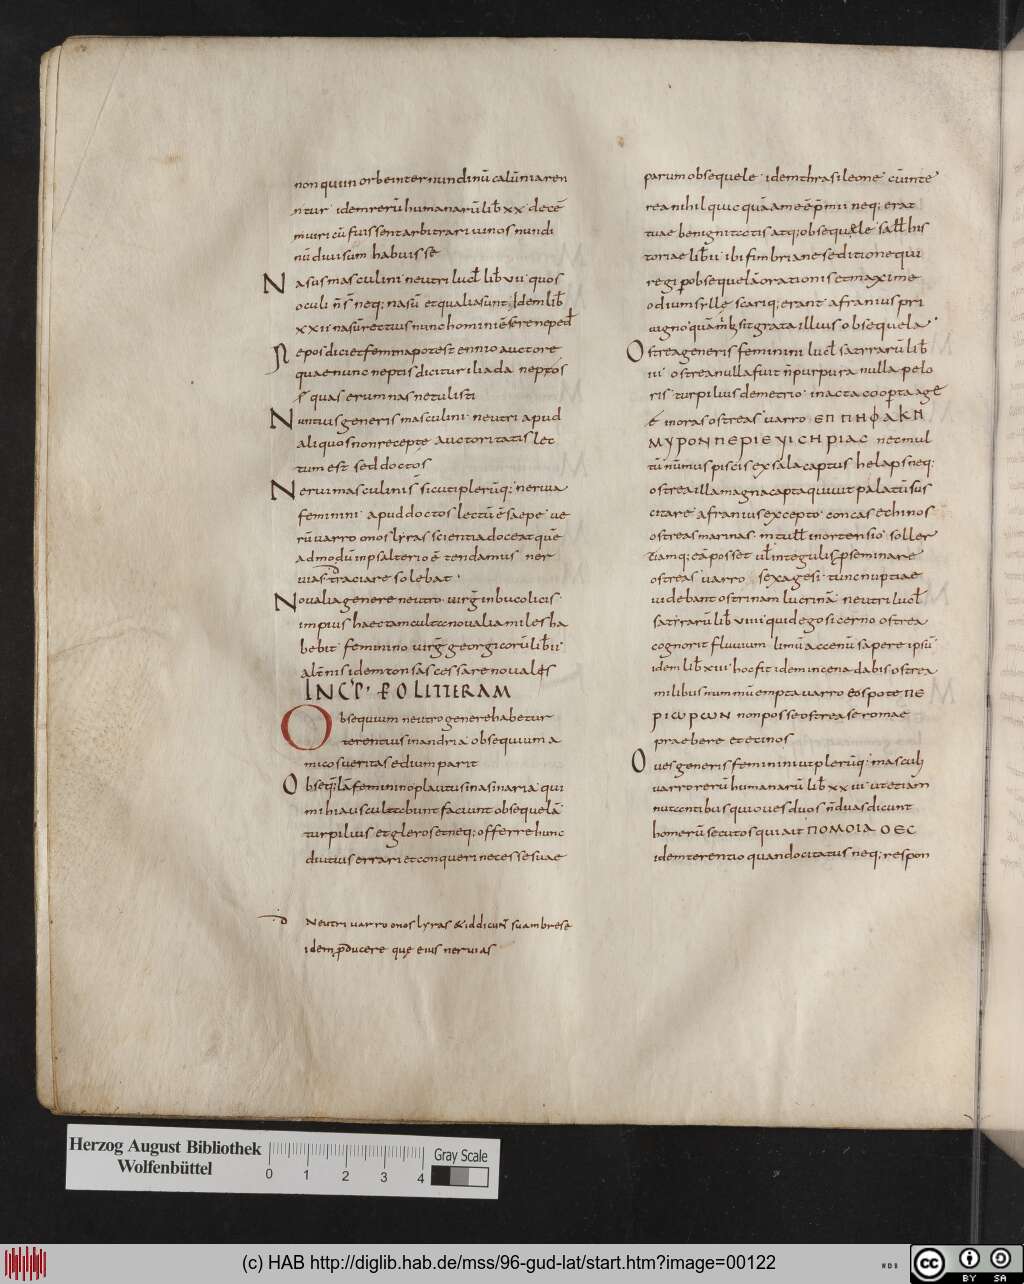 non quiin orbe inter nundinū calūniaren
ntur idem rerū humanarū lib̄ xx decē
muiri cū fuissent arbitrari uinos nundi
nū diuisum habuisse
Nasus masculini neutri lucł lib̄ vii quos
oculi n̄ s̄ neq; nasū et qualia sunt idem lib̄
xxii nasū rectius nunc homini ē fere ne ped
Nepos dici et feminā potest ennio auctore
quae nunc neptis dicitur ilia da neptos
quas erumnas netulisti
Nuntius generis masculini neutri apud
aliquos non recepte auctoritatis lec
tum est sed doctos
Nerui masculini s̄ sicuti plerūq; nerua
feminini apud doctos lectū ē saepe ue
rū uarro onos lyras scientia doceat quē
admodū in psalterio ē tendamus ner
uias traciare solebat
Noualia genere neutro uirg̅ in bucolicis
impius haec tam culta noualia miles ha
bebit feminino uirg̅ georgicorū lib̄ ii
alt̄nis idem tonsas cessare nouales
INCP FO LITTERAM
Obsequium neutro genere habetur
terentius in andria obsequium a
micos ueritas edium parit
Obseq;lā feminino plautus in asinaria qui
mihi auscultabunt faciunt obsequelā
turpilius et gleros et neq; offerre hunc
diutius errari et conqueri necesse suae
Neutri uarro onos lyras & id dicunt suambrese
idem producere que eius neruias
parum obsequele idem thrasileone cū inte
rea nihil quic quā a me ep̄mii neq; erat
tuae benignitatis atq; obsequele sall his
toriae lib̄ ii ibi fimbriane seditione qui
regi p obsequelā orationis et maxime
odium sylle scariq; erant afranius pri
uigno quā mihi sit grata illius obsequela
Ostrea generis feminini lucł satrrarū lib̄
iii ostrea nulla fuit n̄ purpura nulla pelo
ris turpilius demetrio in acta coopta age
inoras ostreas uarro ΕΠ ΠΗΦΑΚΗ
ΜΥΡΟΝ ΠΕΡΙΕΥΙCΗΡΙΑC nec mul
tū nūmus piscis ex sala captus helaps neq;
ostrea illa magna capta quiuit palatū sus
citare afranius excepto concas echinos
ostreas marinas m tull in ortensio soller
tiamq; eā posset uł in tegulis pseminare
ostreas uarro sexagesi tunc nuptiae
uidebant ostrinam lucrinā neutri lucł
satrrarū lib̄ viiii quid ego si cerno ostrea
cognorit fluuium limū ac cenū sapere ipsū
idem lib̄ xiii hoc fit idem in cena dabis ostrea
milibus nummū empta uarro eospote ΠΕ
ΡΙΩΡΩΝ non posse ostrea se romae
praebere et etinos
Oues generis feminini ut plerūq; masculi
uarro rerū humanarū lib̄ xx iii ut etiam
nut contibus qui oues duos n̄ duas dicunt
homerū secutos qui ait ΠΟΜΟΙΑ ΟΕC
idem terentio quando citatus neq; respon
Herzog August Bibliothek
Wolfenbüttel
0 1 2 3 4
Gray Scale
(c) HAB http://diglib.hab.de/mss/96-gud-lat/start.htm?image=00122
WDB
cc BY SA